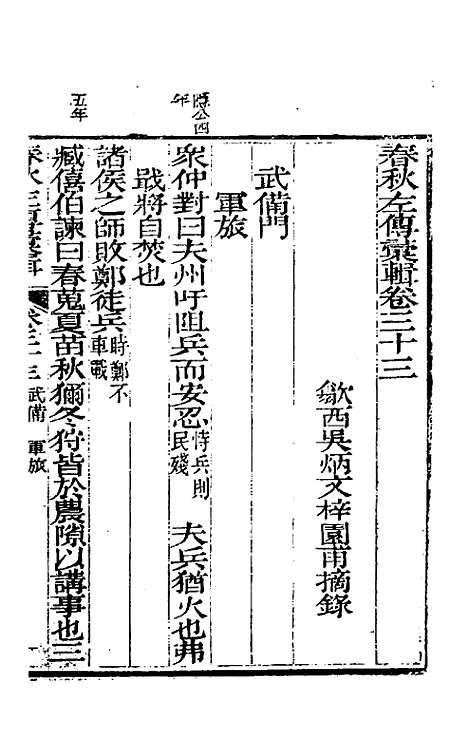 春秋左傳彙輯卷三十三
歙西吳炳文梓園甫摘錄
武備門
軍旅
隱公四年
衆仲對曰夫州吁阻兵而安忍恃兵則民殘 夫兵猶火也弗
戢將自焚也
諸侯之師敗鄭徒兵時鄭不車戰
五年
臧僖伯諫曰春蒐夏苗秋獮冬狩皆於農隙以講事也三
春秋左傳彙輯 卷三十三 武備 軍旅